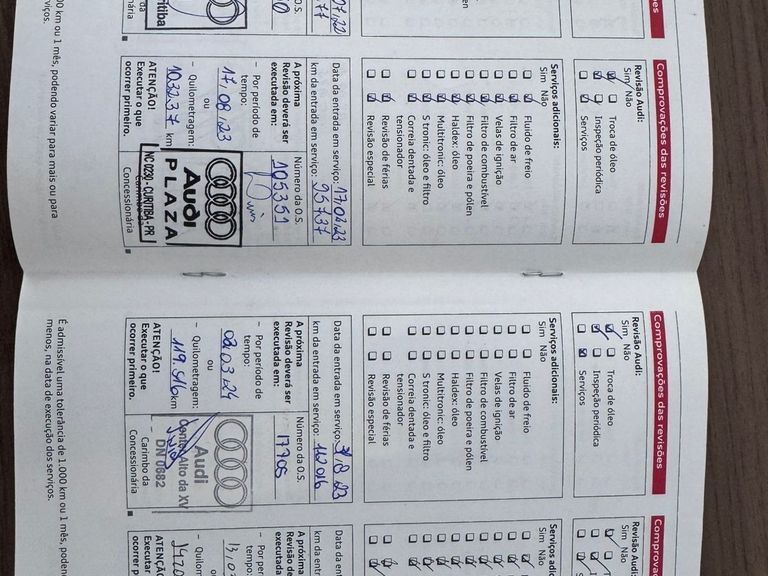 Comprovações das revisões
Revisão Audi:
Sim Não
Troca de óleo
Inspeção periódica
Serviços
Serviços adicionais:
Sim Não
Fluido de freio
Filtro de ar
Velas de ignição
Filtro de combustível
Filtro de poeira e pólen
Haldex: óleo
Multitronic: óleo
S tronic: óleo e filtro
Correia dentada e
tensionador
Revisão de férias
Revisão especial
Data da entrada em serviço: 17.02.23
km da entrada em serviço: 95737
A próxima
Revisão deverá ser
executada em:
- Por período de
tempo:
17, 08, 23
ou
- Quilometragem:
103237 km
ATENÇÃO!
Executar o que
ocorrer primeiro.
Número da O.S.
105351
Audi
PLAZA
NC 1030 - CURITIBA - PR
Concessionária
000 km ou 1 mês, podendo variar para mais ou para
Comprovações das revisões
Revisão Audi:
Sim Não
Troca de óleo
Inspeção periódica
Serviços
Serviços adicionais:
Sim Não
Fluido de freio
Filtro de ar
Velas de ignição
Filtro de combustível
Filtro de poeira e pólen
Haldex: óleo
Multitronic: óleo
S tronic: óleo e filtro
Correia dentada e
tensionador
Revisão de férias
Revisão especial
Data da entrada em serviço:
km da entrada em serviço:
A próxima
Revisão deverá ser
executada em:
- Por período de
tempo:
02.03.24
ou
- Quilometragem:
119.516 km
ATENÇÃO!
Executar o que
ocorrer primeiro.
Número da O.S.
17705
Audi
Center Alto da XV
DN 0682
Carimbo da
Concessionária
É admissível uma tolerância de 1.000 km ou 1 mês,
menos, na data de execução dos serviços.